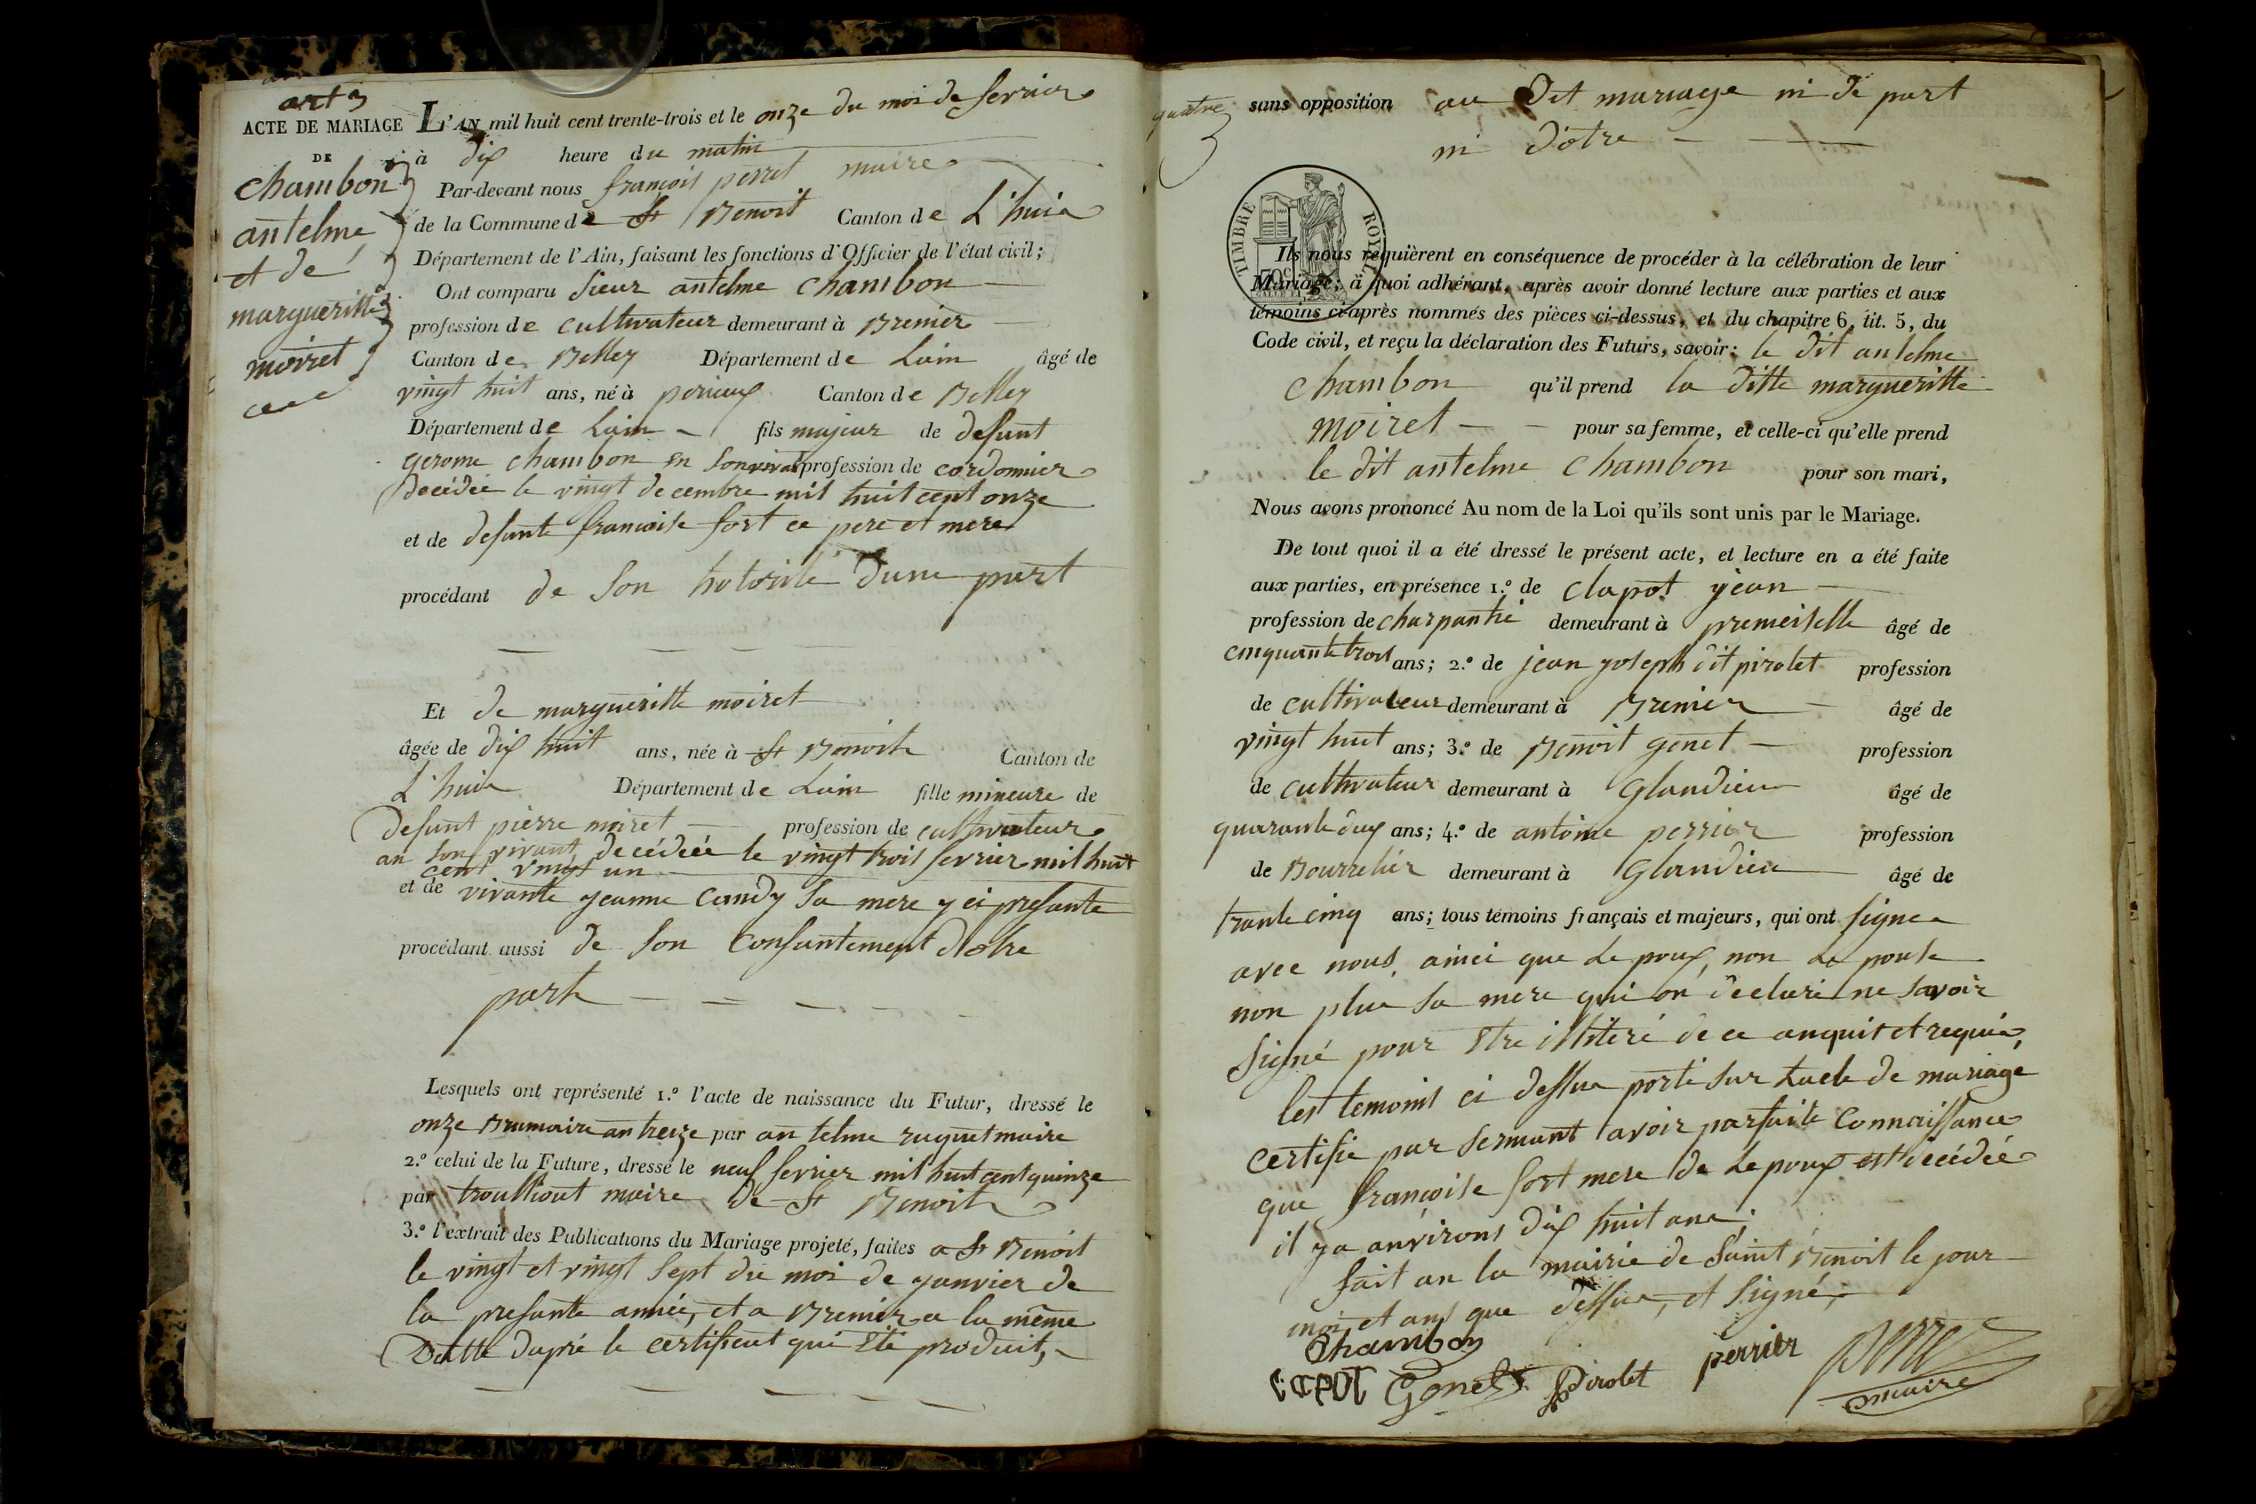 art 3
ACTE DE MARIAGE
DE
chambon
antelme
et de
margueritte
moiret
L'AN mil huit cent trente-trois et le onze du mois de fevrier
à dix heure du matin
Par-devant nous françois perret maire
de la Commune de St Benoit Canton de L'huis
Département de l'Ain, faisant les fonctions d'Officier de l'état civil;
Ont comparu sieur antelme chambon
profession de cultivateur demeurant à Brenier
Canton de Belley Département de Lain âgé de
vingt huit ans, né à perieux Canton de Belley
Département de Lain fils majeur de defunt
gerome chambon en son vivant profession de cordonnier
decédée le vingt decembre mil huit cent onze
et de defunte francoise fort ce pere et mere
procédant de son hotorité dune part
Et de margueritte moiret
âgée de dix huit ans, née à St Benoit Canton de
L'huis Département de Lain fille mineure de
defunt pierre moiret profession de cultivateur
an son vivant decédéé le vingt trois fevrier mil huit
cent vingt un
et de vivante jeanne candy sa mere y ci presante
procédant aussi de son consantement dotre
part
Lesquels ont représenté 1.º l'acte de naissance du Futur, dressé le
onze Brumaire an treize par antelme ruquet maire
2.º celui de la Future, dressé le neuf fevrier mil huit cent quinze
par trouilliout maire de St Benoit
3.º l'extrait des Publications du Mariage projeté, faites a St Benoit
le vingt et vingt sept du moi de janvier de
la presante année, et a Brenier a la même
Datte dapré le certificat qui été produit,
quatre
sans opposition au dit mariage ni de part
ni d'otre
TIMBRE ROYAL
70 c
Ils nous requièrent en conséquence de procéder à la célébration de leur
Mariage; à quoi adhérant, après avoir donné lecture aux parties et aux
témoins ci-après nommés des pièces ci-dessus, et du chapitre 6, tit. 5, du
Code civil, et reçu la déclaration des Futurs, savoir: le dit antelme
chambon qu'il prend la ditte margueritte
moiret pour sa femme, et celle-ci qu'elle prend
le dit antelme chambon pour son mari,
Nous avons prononcé Au nom de la Loi qu'ils sont unis par le Mariage.
De tout quoi il a été dressé le présent acte, et lecture en a été faite
aux parties, en présence 1.º de clapot jean
profession de charpantié demeurant à premeiselle âgé de
cinquante trois ans; 2.º de jean joseph dit pirolet profession
de cultivateur demeurant à Brenier âgé de
vingt huit ans; 3.º de Benoit genet profession
de cultivateur demeurant à Glandieu âgé de
quarante deux ans; 4.º de antoine perrier profession
de Bourrelier demeurant à Glandieu âgé de
trante cinq ans; tous témoins français et majeurs, qui ont signe
avec nous, ainci que Lepoux, non Lepouse
non plus sa mere qui on declaré ne savoir
signé pour être illiteré de ce anquit et requis,
les temoins ci dessus porté sur Lacte de mariage
certifie par sermant avoir parfaite connaissance
que françoise fort mere de Lepoux est decédée
il y a anvirons dix huit ans;
fait an la mairie de Saint Benoit le jour
moi et ans que dessus, et signé,
Chambon
Capot Genet Pirolet perrier perret
maire